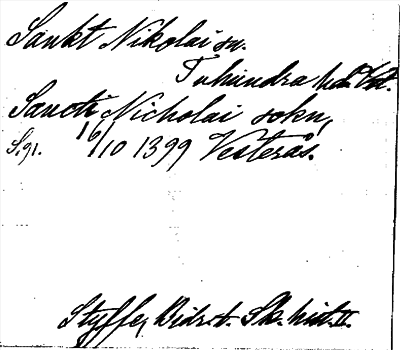 Sankt Nikolai sn.
Tuhundra hd. Vstm.
Sancti Nicholai sokn,
S. 91. 16/10 1399 Vesterås.
Styffe, Bidr. t. Sk. hist. II.